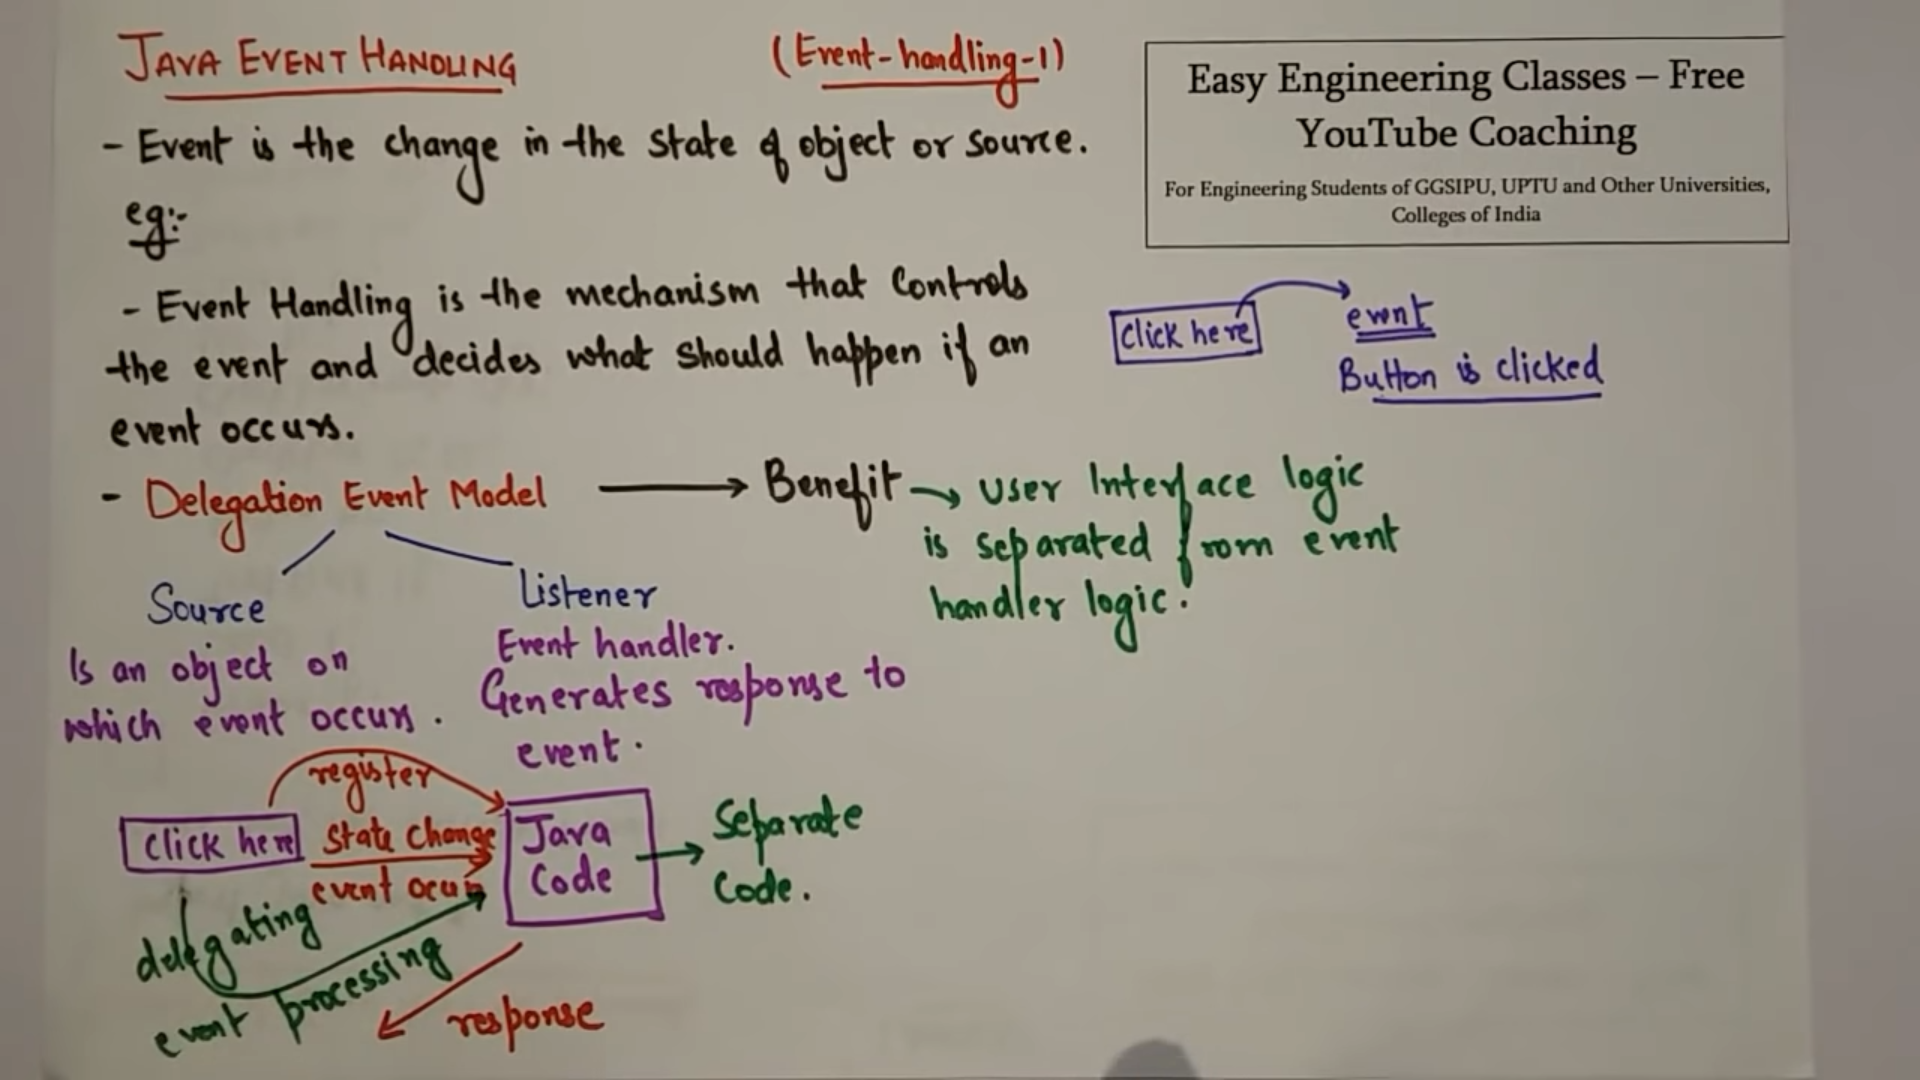 JAVA EVENT HANDLING
(Event-handling-1)
Easy Engineering Classes – Free
YouTube Coaching
For Engineering Students of GGSIPU, UPTU and Other Universities,
Colleges of India
- Event is the change in the state of object or source.
eg:-
- Event Handling is the mechanism that controls
the event and decides what should happen if an
event occurs.
click here
event
Button is clicked
- Delegation Event Model
Benefit
User Interface logic
is separated from event
handler logic.
Source
Is an object on
which event occurs.
Listener
Event handler.
Generates response to
event.
register
click here
state change
event occurs
Java
Code
Separate
Code.
delegating
event processing
response